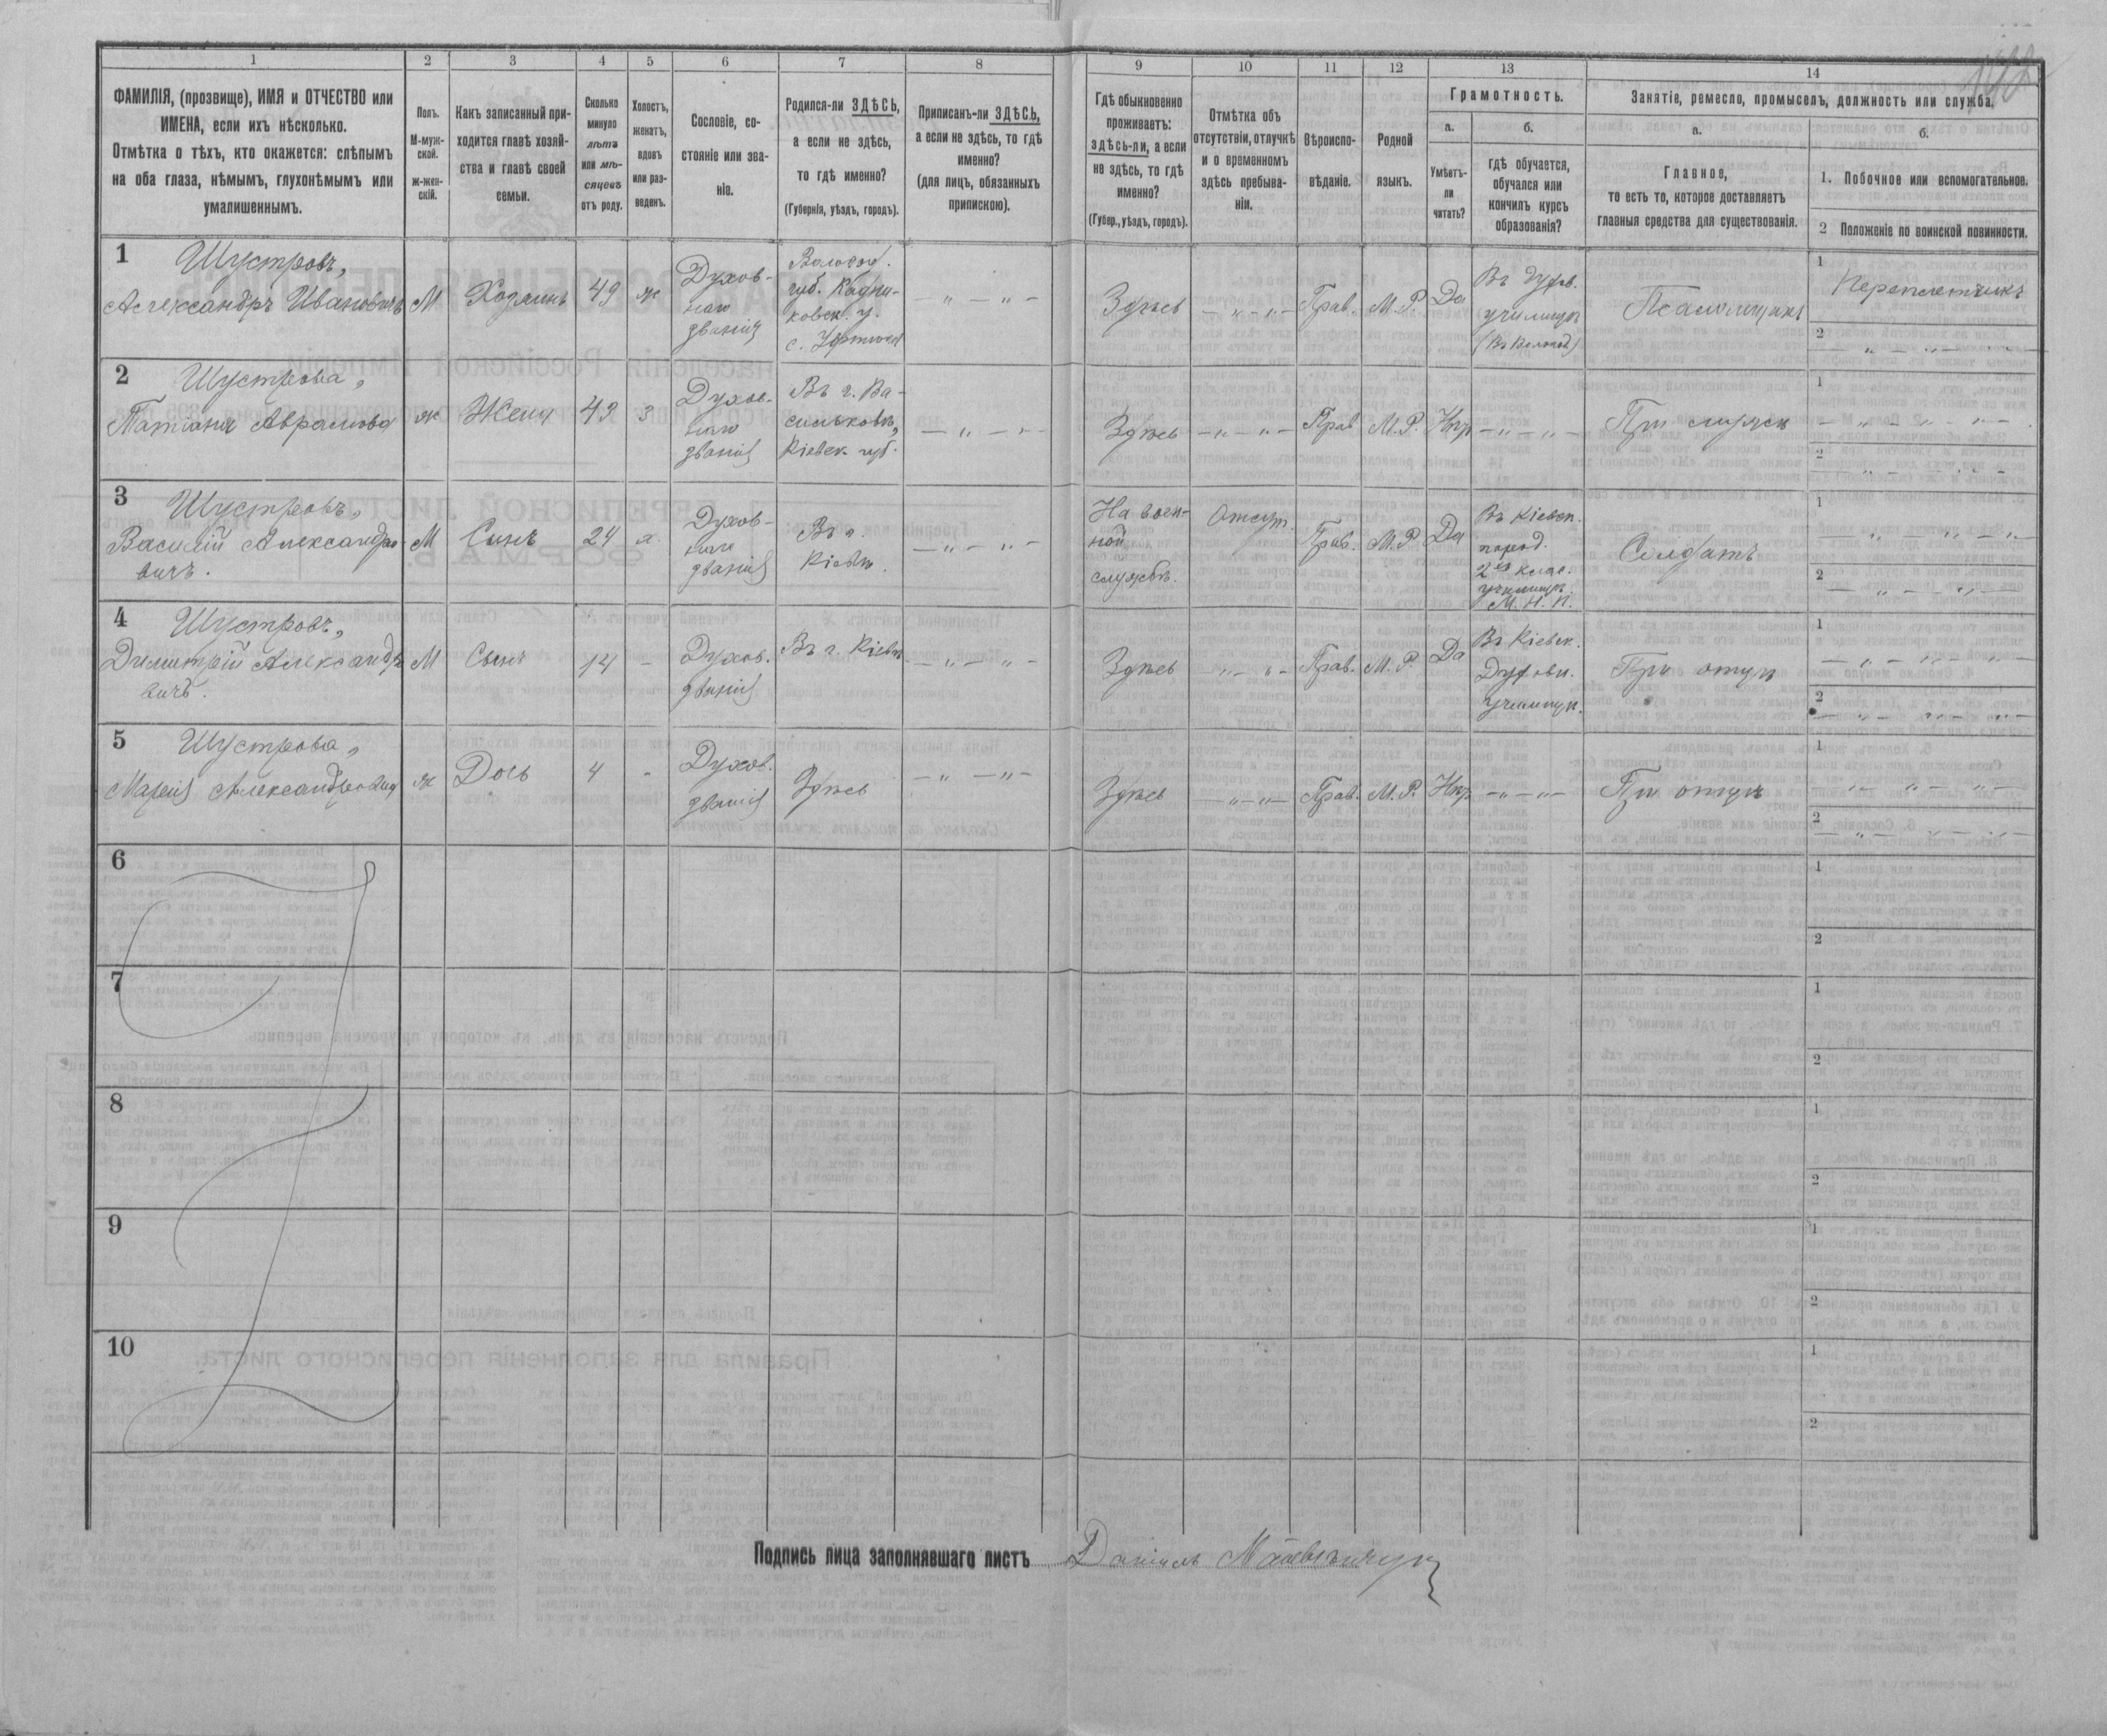 1
2
3
4
5
6
7
8
9
10
11
12
13
14
ФАМИЛІЯ, (прозвище), ИМЯ и ОТЧЕСТВО или
ИМЕНА, если ихъ нѣсколько.
Отмѣтка о тѣхъ, кто окажется: слѣпымъ
на оба глаза, нѣмымъ, глухонѣмымъ или
умалишеннымъ.
Полъ.
М-муж-
ской.
ж-жен-
скій.
Какъ записанный при-
ходится главѣ хозяй-
ства и главѣ своей
семьи.
Сколько
минуло
лѣтъ
или мѣ-
сяцевъ
отъ роду.
Холостъ,
женатъ,
вдовъ
или раз-
веденъ.
Сословіе, со-
стояніе или зва-
ніе.
Родился-ли ЗДѢСЬ,
а если не здѣсь,
то гдѣ именно?
(Губернія, уѣздъ, городъ).
Приписанъ-ли ЗДѢСЬ,
а если не здѣсь, то гдѣ
именно?
(для лицъ, обязанныхъ
припискою).
Гдѣ обыкновенно
проживаетъ:
здѣсь-ли, а если
не здѣсь, то гдѣ
именно?
(Губер., уѣздъ, городъ).
Отмѣтка объ
отсутствіи, отлучкѣ
и о временномъ
здѣсь пребыва-
ніи.
Вѣроиспо-
вѣданіе.
Родной
языкъ.
Грамотность.
а.
Умѣетъ-
ли
читать?
б.
гдѣ обучается,
обучался или
кончилъ курсъ
образованія?
Занятіе, ремесло, промыселъ, должность или служба.
а.
Главное,
то есть то, которое доставляетъ
главныя средства для существованія.
б.
1. Побочное или вспомогательное.
2 Положеніе по воинской повинности.
1
Шустровъ,
Александръ Ивановичъ
М
Хозяинъ
49
ж
Духов-
наго
званія
Вологод.
губ. Кадни-
ковск. у.
с.
— „ — „ —
Здѣсь
— „ — „ —
Прав.
М. Р.
Да
Въ духов.
училищѣ
(въ Вологдѣ)
Псаломщикъ
1
Переплетчикъ
2
— „ — „ — „ —
2
Шустрова,
Татіана Аврамова
ж
Жена
49
з
Духов-
наго
званія
Въ г. Ва-
сильковѣ,
Кіевск. губ.
— „ — „ —
Здѣсь
— „ — „ —
Прав.
М. Р.
Нѣт
— „ — „ —
При мужѣ
1
— „ — „ — „ —
2
— „ — „ — „ —
3
Шустровъ,
Василій Александро-
вичъ.
М
Сынъ
24
х.
Духов-
наго
званія
Въ г.
Кіевѣ.
— „ — „ —
На воен-
ной
службѣ.
Отсут.
Прав.
М. Р.
Да
Въ Кіевск.
город.
2хъ клас.
училищѣ
М. Н. П.
Солдатъ
1
— „ — „ — „ —
2
— „ — „ — „ —
4
Шустровъ,
Димитрій Александро
вичъ.
М
Сынъ
14
-
Духов.
званія
Въ г. Кіевѣ
— „ — „ —
Здѣсь
— „ — „ —
Прав.
М. Р.
Да
Въ Кіевск.
Духовн.
училищѣ.
При отцѣ
1
— „ — „ — „ —
2
— „ — „ — „ —
5
Шустрова,
Марія Александровна
ж
Дочь
4
-
Духов.
званія
Здѣсь
— „ — „ —
Здѣсь
— „ — „ —
Прав.
М. Р.
Нѣт
— „ — „ —
При отцѣ
1
— „ — „ — „ —
2
— „ — „ — „ —
6
1
2
7
1
2
8
1
2
9
1
2
10
1
2
Подпись лица заполнявшаго листъ
Даніилъ